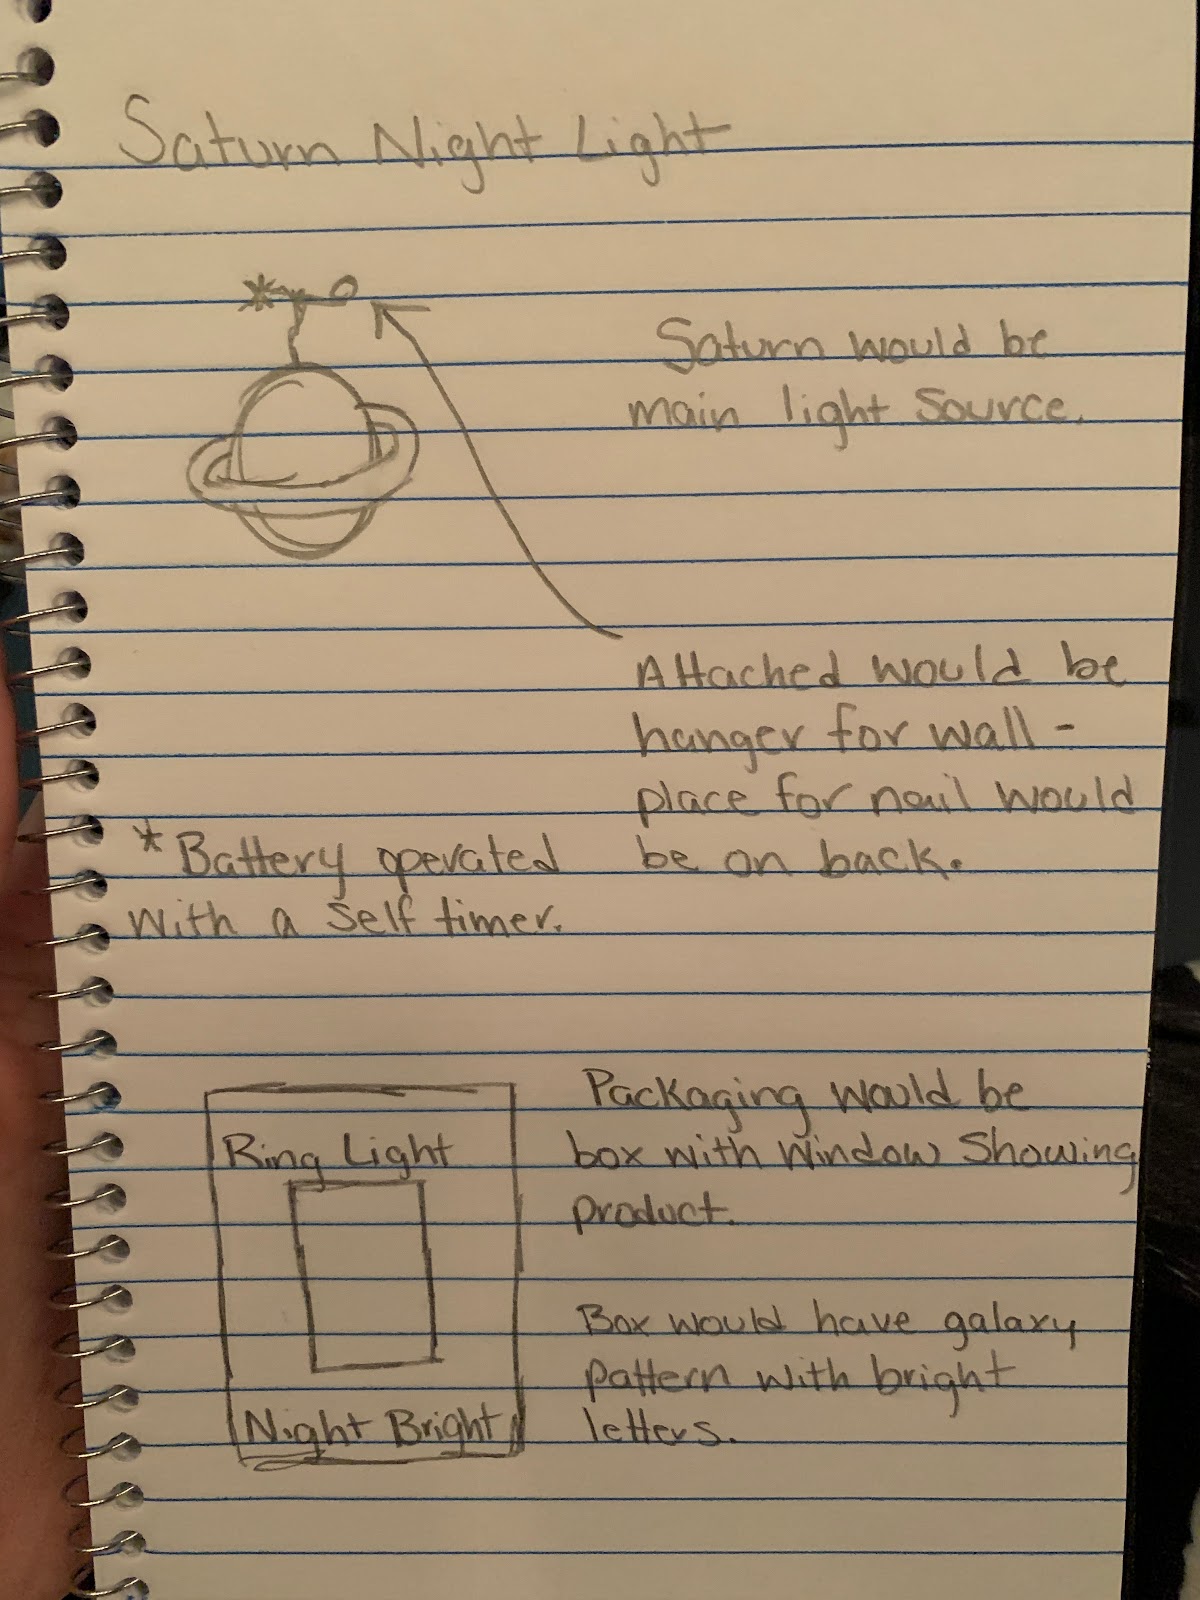 Saturn Night Light
Saturn would be
main light source.
Attached would be
hanger for wall -
place for nail would
be on back.
* Battery operated
with a self timer.
Ring Light
Night Bright
Packaging would be
box with window showing
product.
Box would have galaxy
pattern with bright
letters.